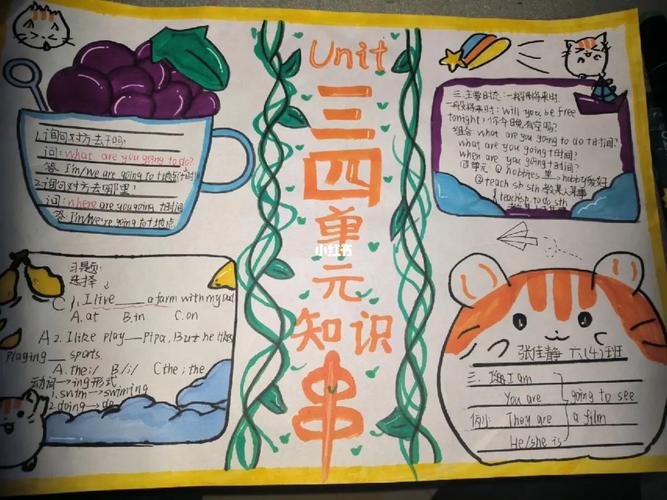 Unit
三
四
单
元
知识
串
小红书
1.询问对方去干吗:
问:what are you going to do?
答:I'm/we are going to+
2.询问对方去哪里?
问:where are you going +时间
答:I'm/we're going to+地点
习题:
选择
C 1. I live ___ a farm with my
A. at B. in C. on
A 2. I like play ___ Pipa, But he likes
playing ___ sports.
A. the:/ B./:/ C the: the
动词→ing形式
1. swim→swiming
2. doing→do
三.主要时态:一般将来时
一般将来时: will you be free
tonight? 你今晚有空吗?
组合 what are you going to do +时间?
what are you going +时间?
when are you going +时间?
四单元 ① hobbies
② teach sb sth 教某人某事
teach sb to do sth
张佳静 六(4)班
三. I am
You are going to see
例: They are a film
He/she is